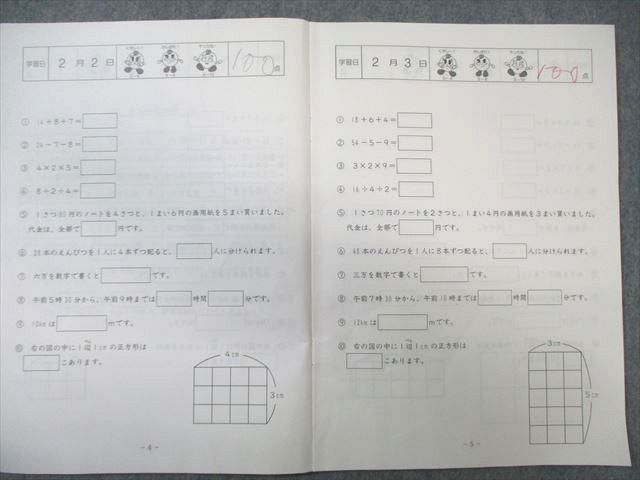 学習日 2月2日 100点
① 16+8+7=
② 36-7-8=
③ 4×2×5=
④ 8÷2÷4=
⑤ 1さつ80円のノートを4さつと、1まい6円の画用紙を5まい買いました。
代金は、全部で 円です。
⑥ 28本のえんぴつを1人に4本ずつ配ると、 人に分けられます。
⑦ 六万を数字で書くと です。
⑧ 午前5時30分から、午前9時までは 時間 分です。
⑨ 10kmは mです。
⑩ 右の図の中に1辺1cmの正方形は
こあります。
4cm
3cm
-4-
学習日 2月3日 100点
① 18+6+4=
② 54-5-9=
③ 3×2×9=
④ 16÷4÷2=
⑤ 1さつ70円のノートを2さつと、1まい4円の画用紙を3まい買いました。
代金は、全部で 円です。
⑥ 48本のえんぴつを1人に8本ずつ配ると、 人に分けられます。
⑦ 三万を数字で書くと です。
⑧ 午前7時30分から、午前10時までは 時間 分です。
⑨ 12kmは mです。
⑩ 右の図の中に1辺1cmの正方形は
こあります。
3cm
5cm
-5-